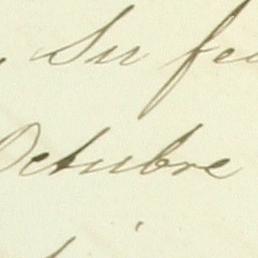 , Su fe
Octubre